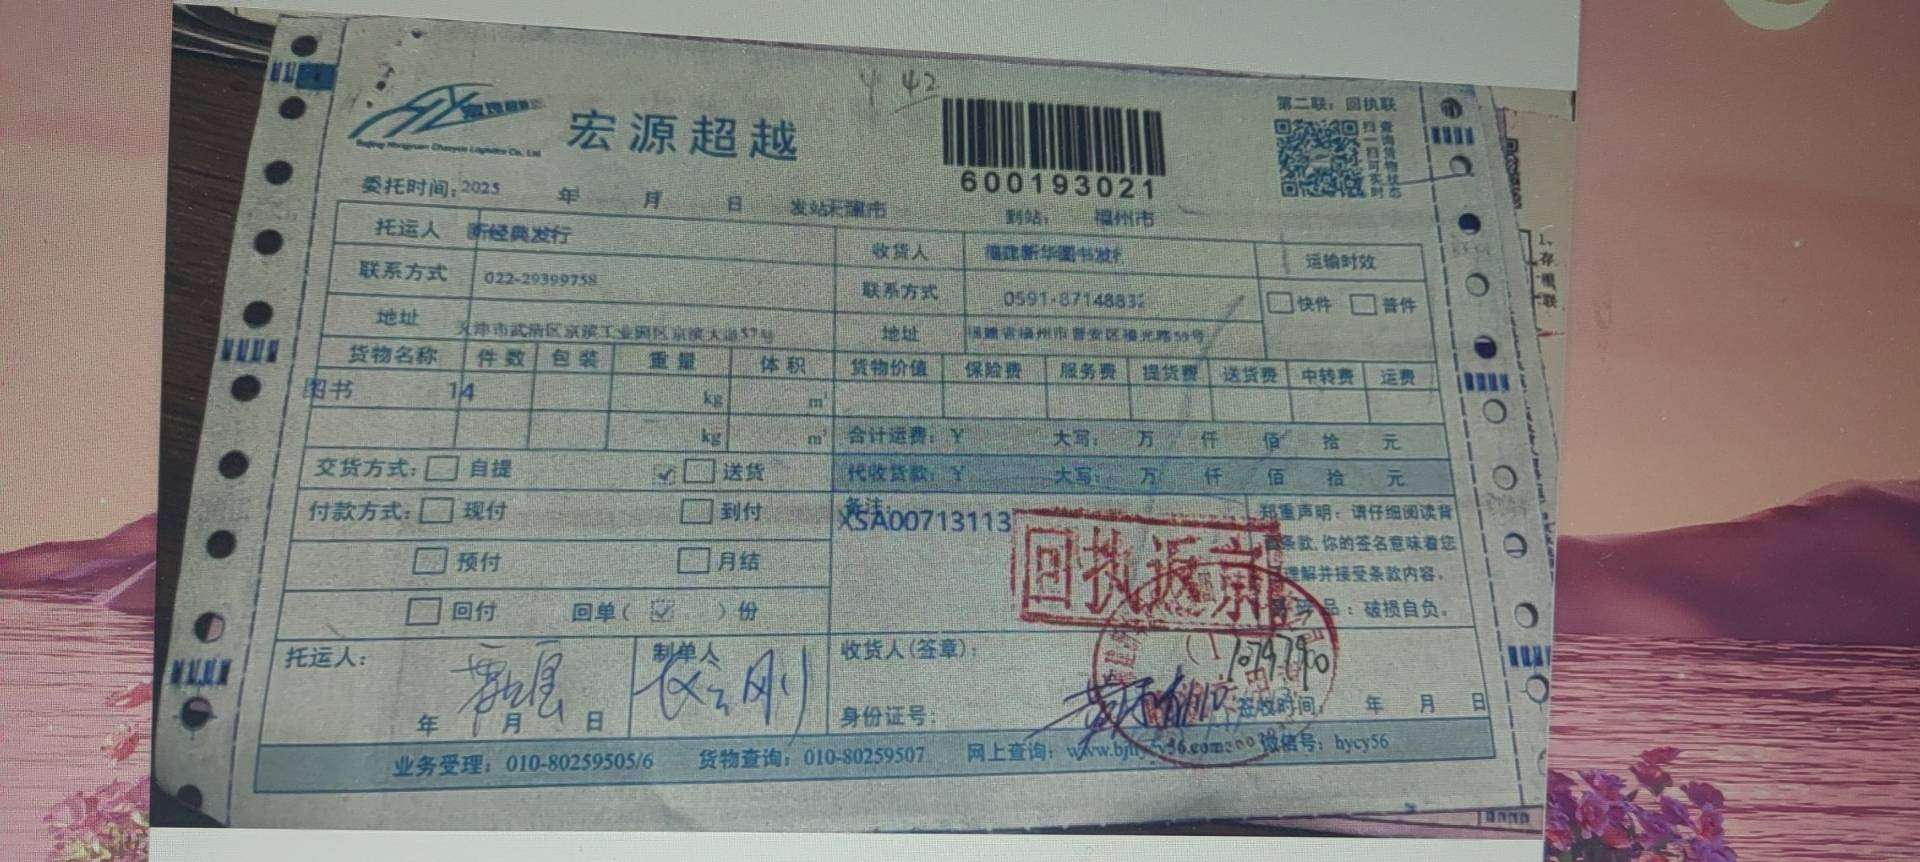 442
宏源超越
Beijing Hongyuan Chaoyue Logistics Co., Ltd
600193021
第二联：回执联
扫一扫可实时
查询货物状态
委托时间：2025 年 月 日 发站天津市 到站： 福州市
托运人 新经典发行 收货人 福建新华图书发行 运输时效
联系方式 022-29399758 联系方式 0591-87148832 快件 普件
地址 天津市武清区京滨工业园区京滨大道57号 地址 福建省福州市晋安区福光路59号
货物名称 件数 包装 重量 体积 货物价值 保险费 服务费 提货费 送货费 中转费 运费
图书 14 kg m³
kg m³ 合计运费：¥ 大写： 万 仟 佰 拾 元
交货方式： 自提 送货 代收货款：¥ 大写： 万 仟 佰 拾 元
付款方式： 现付 到付 备注：
XSA00713113
郑重声明：请仔细阅读背
面条款,你的签名意味着您
理解并接受条款内容。
预付 月结
回执返京
回付 回单( )份
品：破损自负。
托运人： 制单人 收货人(签章)：
年 月 日 身份证号： 签收时间 年 月 日
业务受理：010-80259505/6 货物查询：010-80259507 网上查询：www.bjhycy56.com 微信号：hycy56